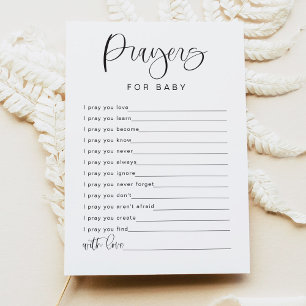 Prayers
FOR BABY
I pray you love
I pray you learn
I pray you become
I pray you know
I pray you never
I pray you always
I pray you ignore
I pray you never forget
I pray you don't
I pray you aren't afraid
I pray you create
I pray you find
with love